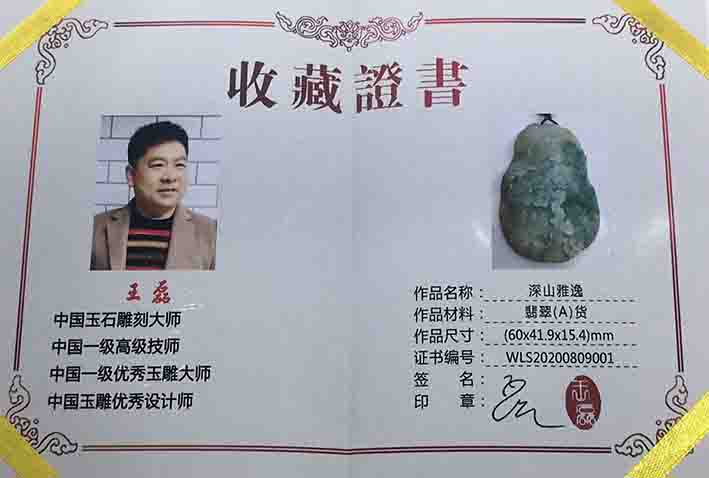 收藏證書
王磊
中国玉石雕刻大师
中国一级高级技师
中国一级优秀玉雕大师
中国玉雕优秀设计师
作品名称：深山雅逸
作品材料：翡翠(A)货
作品尺寸：(60x41.9x15.4)mm
证书编号：WLS20200809001
签名：
印章：
王磊